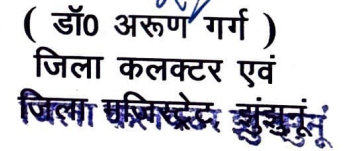 ( डॉ0 अरूण गर्ग )
जिला कलक्टर एवं
जिला मजिस्ट्रेट झुंझुनूं